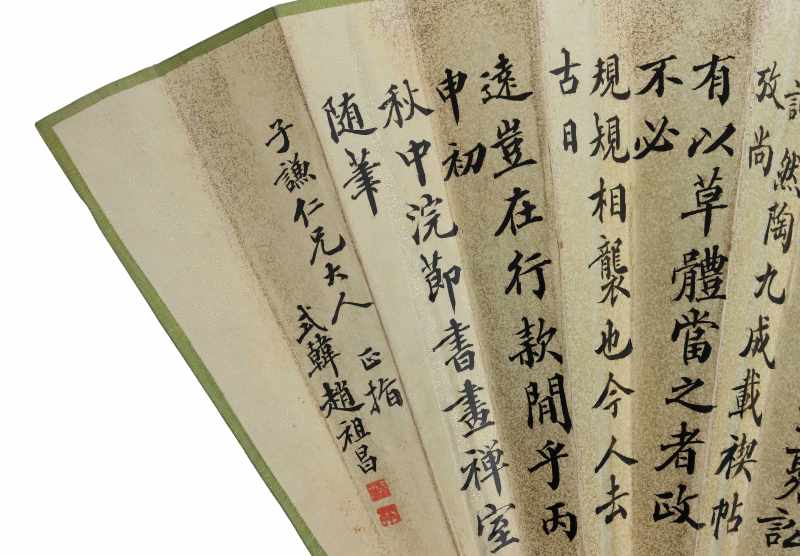 然陶九成載禊帖
攷尚
有以草體當之者政
不必
規規相襲也今人去
古日
遠豈在行款閒乎丙
申初
秋中浣節書畫禅室
随筆
子謙仁兄大人正指
式韓趙祖昌